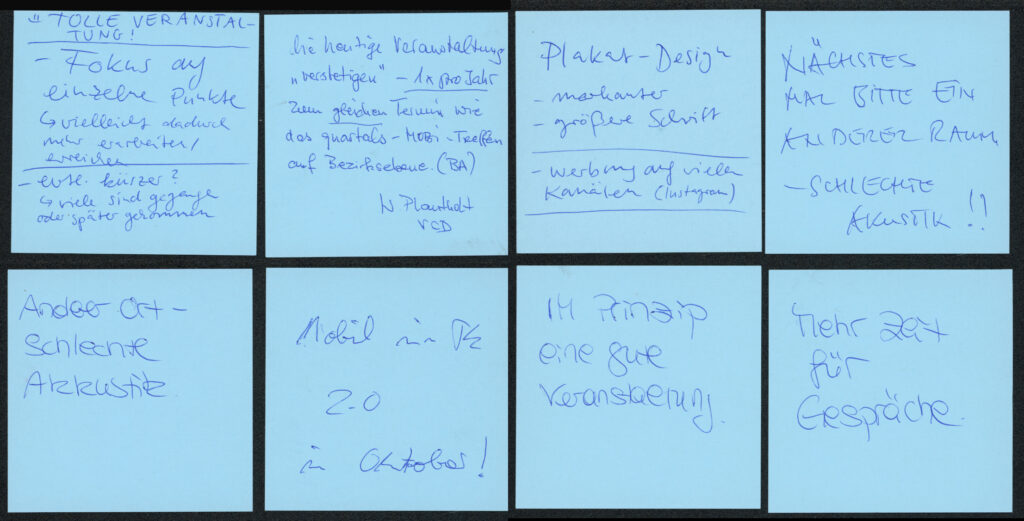 "TOLLE VERANSTAL-
TUNG!
- Fokus auf
einzelne Punkte
↳ vielleicht dadurch
mehr erarbeiten/
erreichen
- evtl. kürzer?
↳ viele sind gegangen
oder später gekommen
Die heutige Veranstaltung
„verstetigen" - 1x pro Jahr
zum gleichen Termin wie
das quartals-MOBI-Treffen
auf Bezirksebene. (BA)
VCD
Plakat-Design
- markanter
- größere Schrift
- werbung auf vielen
Kanälen (Instagram)
NÄCHSTES
MAL BITTE EIN
ANDERER RAUM
- SCHLECHTE
AKUSTIK!!
Ander Ort -
Schlechte
Akkustik
Mobil in TK
2.0
in Oktober!
IM Prinzip
eine gute
Veranstaltung.
Mehr Zeit
für
Gespräche.